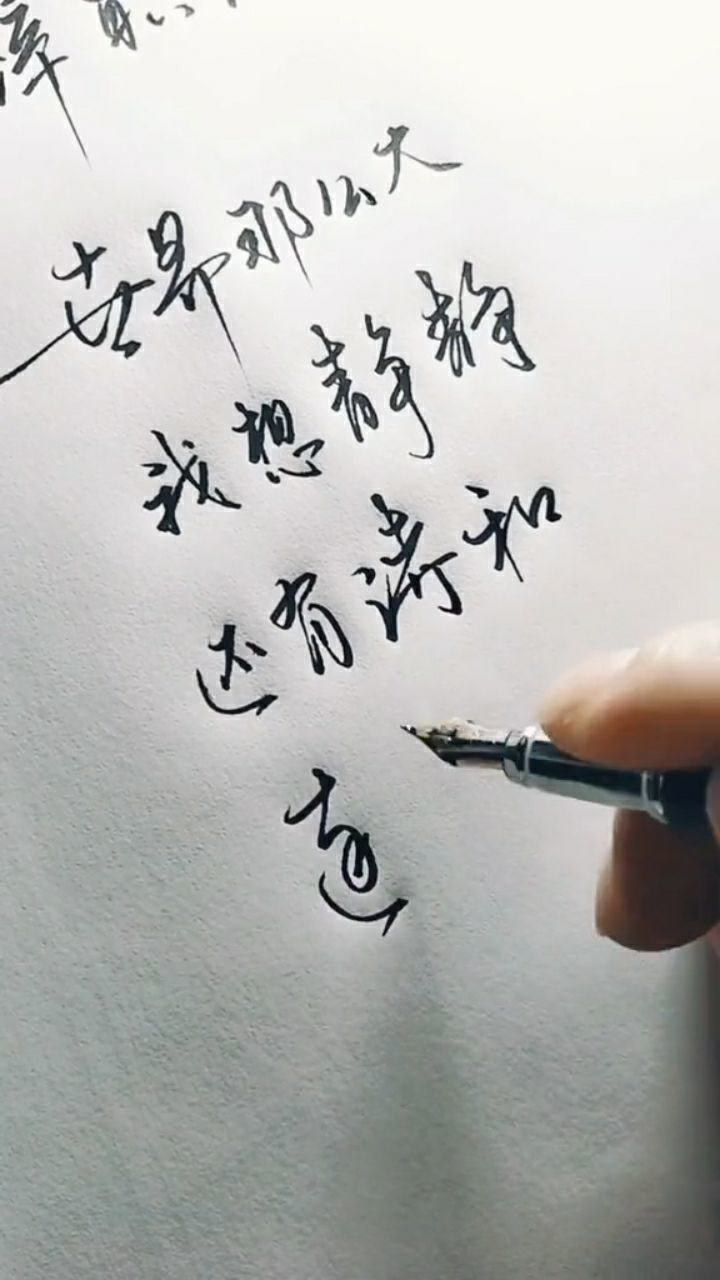 世界那么大
我想静静
还有诗和
远